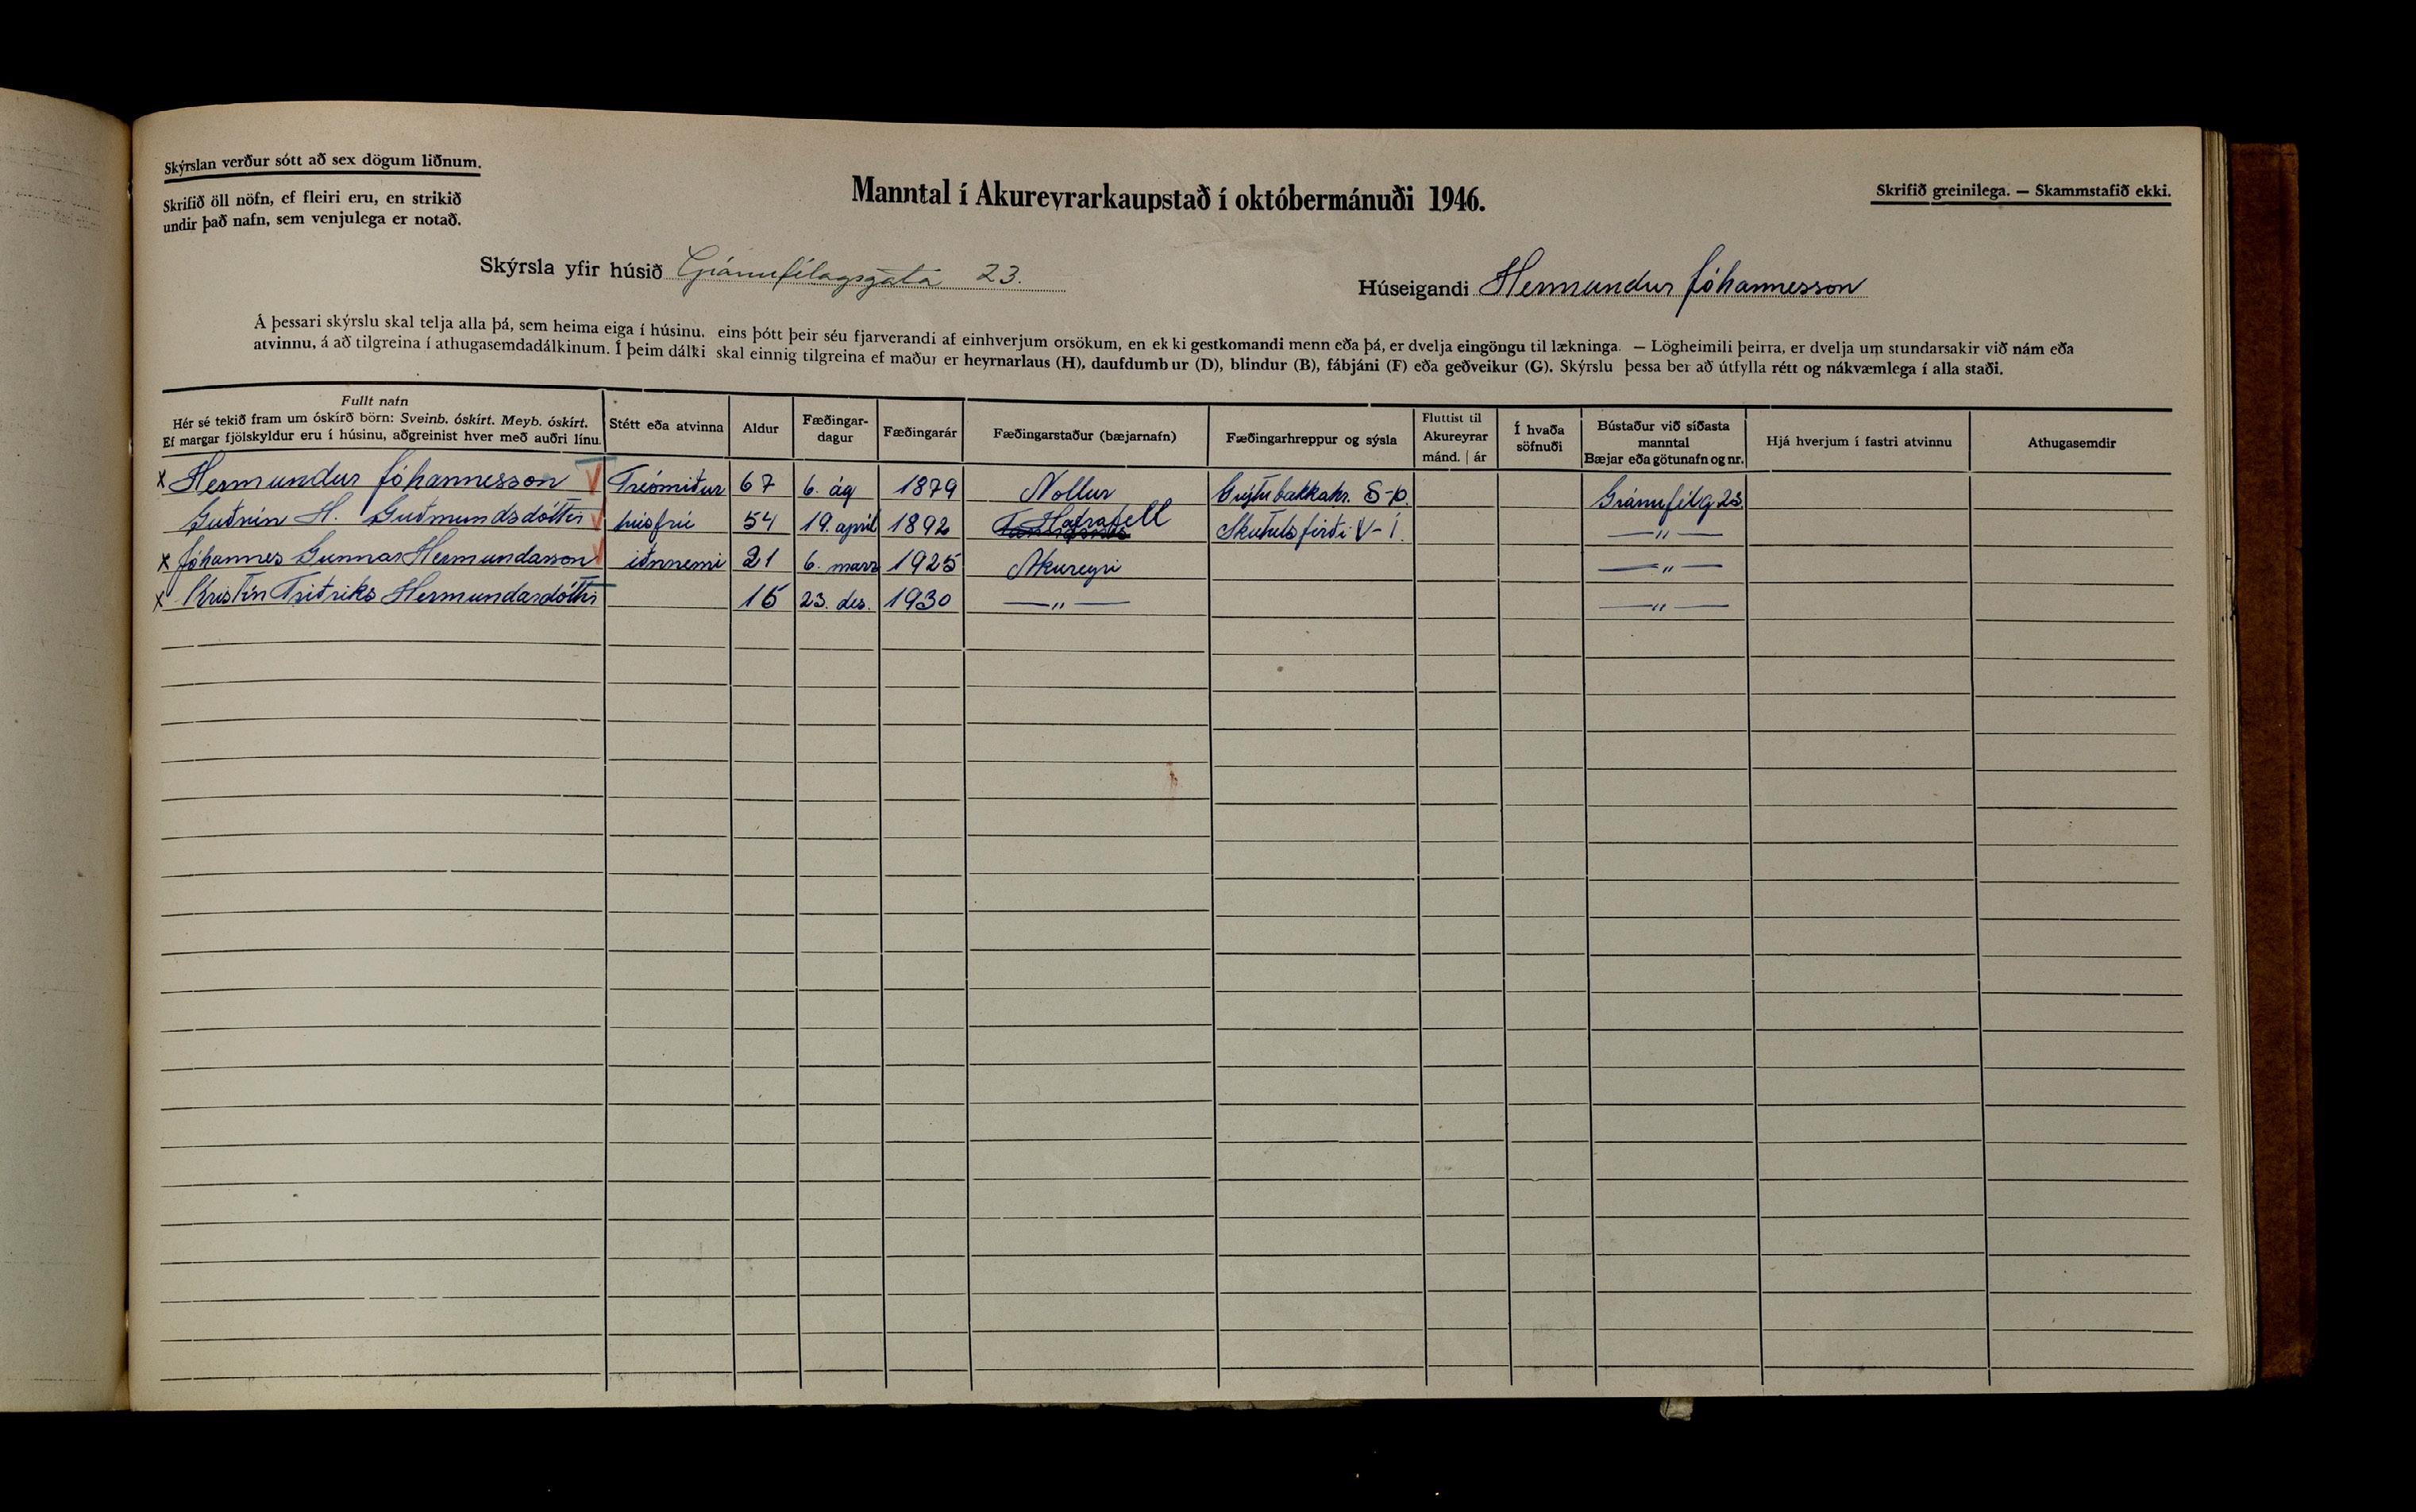 Skýrslan verður sótt að sex dögum liðnum.
Skrifið öll nöfn, ef fleiri eru, en strikið
undir það nafn, sem venjulega er notað.
Manntal í Akureyrarkaupstað í októbermánuði 1946.
Skrifið greinilega. — Skammstafið ekki.
Skýrsla yfir húsið Gránufélagsgata 23.
Húseigandi Hermundur Jóhannesson
Á þessari skýrslu skal telja alla þá, sem heima eiga í húsinu, eins þótt þeir séu fjarverandi af einhverjum orsökum, en ekki gestkomandi menn eða þá, er dvelja eingöngu til lækninga. — Lögheimili þeirra, er dvelja um stundarsakir við nám eða
atvinnu, á að tilgreina í athugasemdadálkinum. Í þeim dálki skal einnig tilgreina ef maður er heyrnarlaus (H), daufdumbur (D), blindur (B), fábjáni (F) eða geðveikur (G). Skýrslu þessa ber að útfylla rétt og nákvæmlega í alla staði.
Fullt nafn
Hér sé tekið fram um óskírð börn: Sveinb. óskírt. Meyb. óskírt.
Ef margar fjölskyldur eru í húsinu, aðgreinist hver með auðri línu.
Stétt eða atvinna
Aldur
Fæðingar-
dagur
Fæðingarár
Fæðingarstaður (bæjarnafn)
Fæðingarhreppur og sýsla
Fluttist til
Akureyrar
mánd. | ár
Í hvaða
söfnuði
Bústaður við síðasta
manntal
Bæjar eða götunafn og nr.
Hjá hverjum í fastri atvinnu
Athugasemdir
x Hermundur Jóhannesson V Trésmiður 67 6. ág 1879 Nollur Grýtubakkahr. S-Þ. Gránufélg 23.
Guðrún H. Guðmundsdóttir V húsfrú 54 19. apríl 1892 Hafrafell Skutulsfirði V-Í. — " —
x Jóhannes Gunnar Hermundarson V iðnnemi 21 6. marz 1925 Akureyri — " —
x Kristín Friðrika Hermundardóttir 15 23. des. 1930 — " — — " —